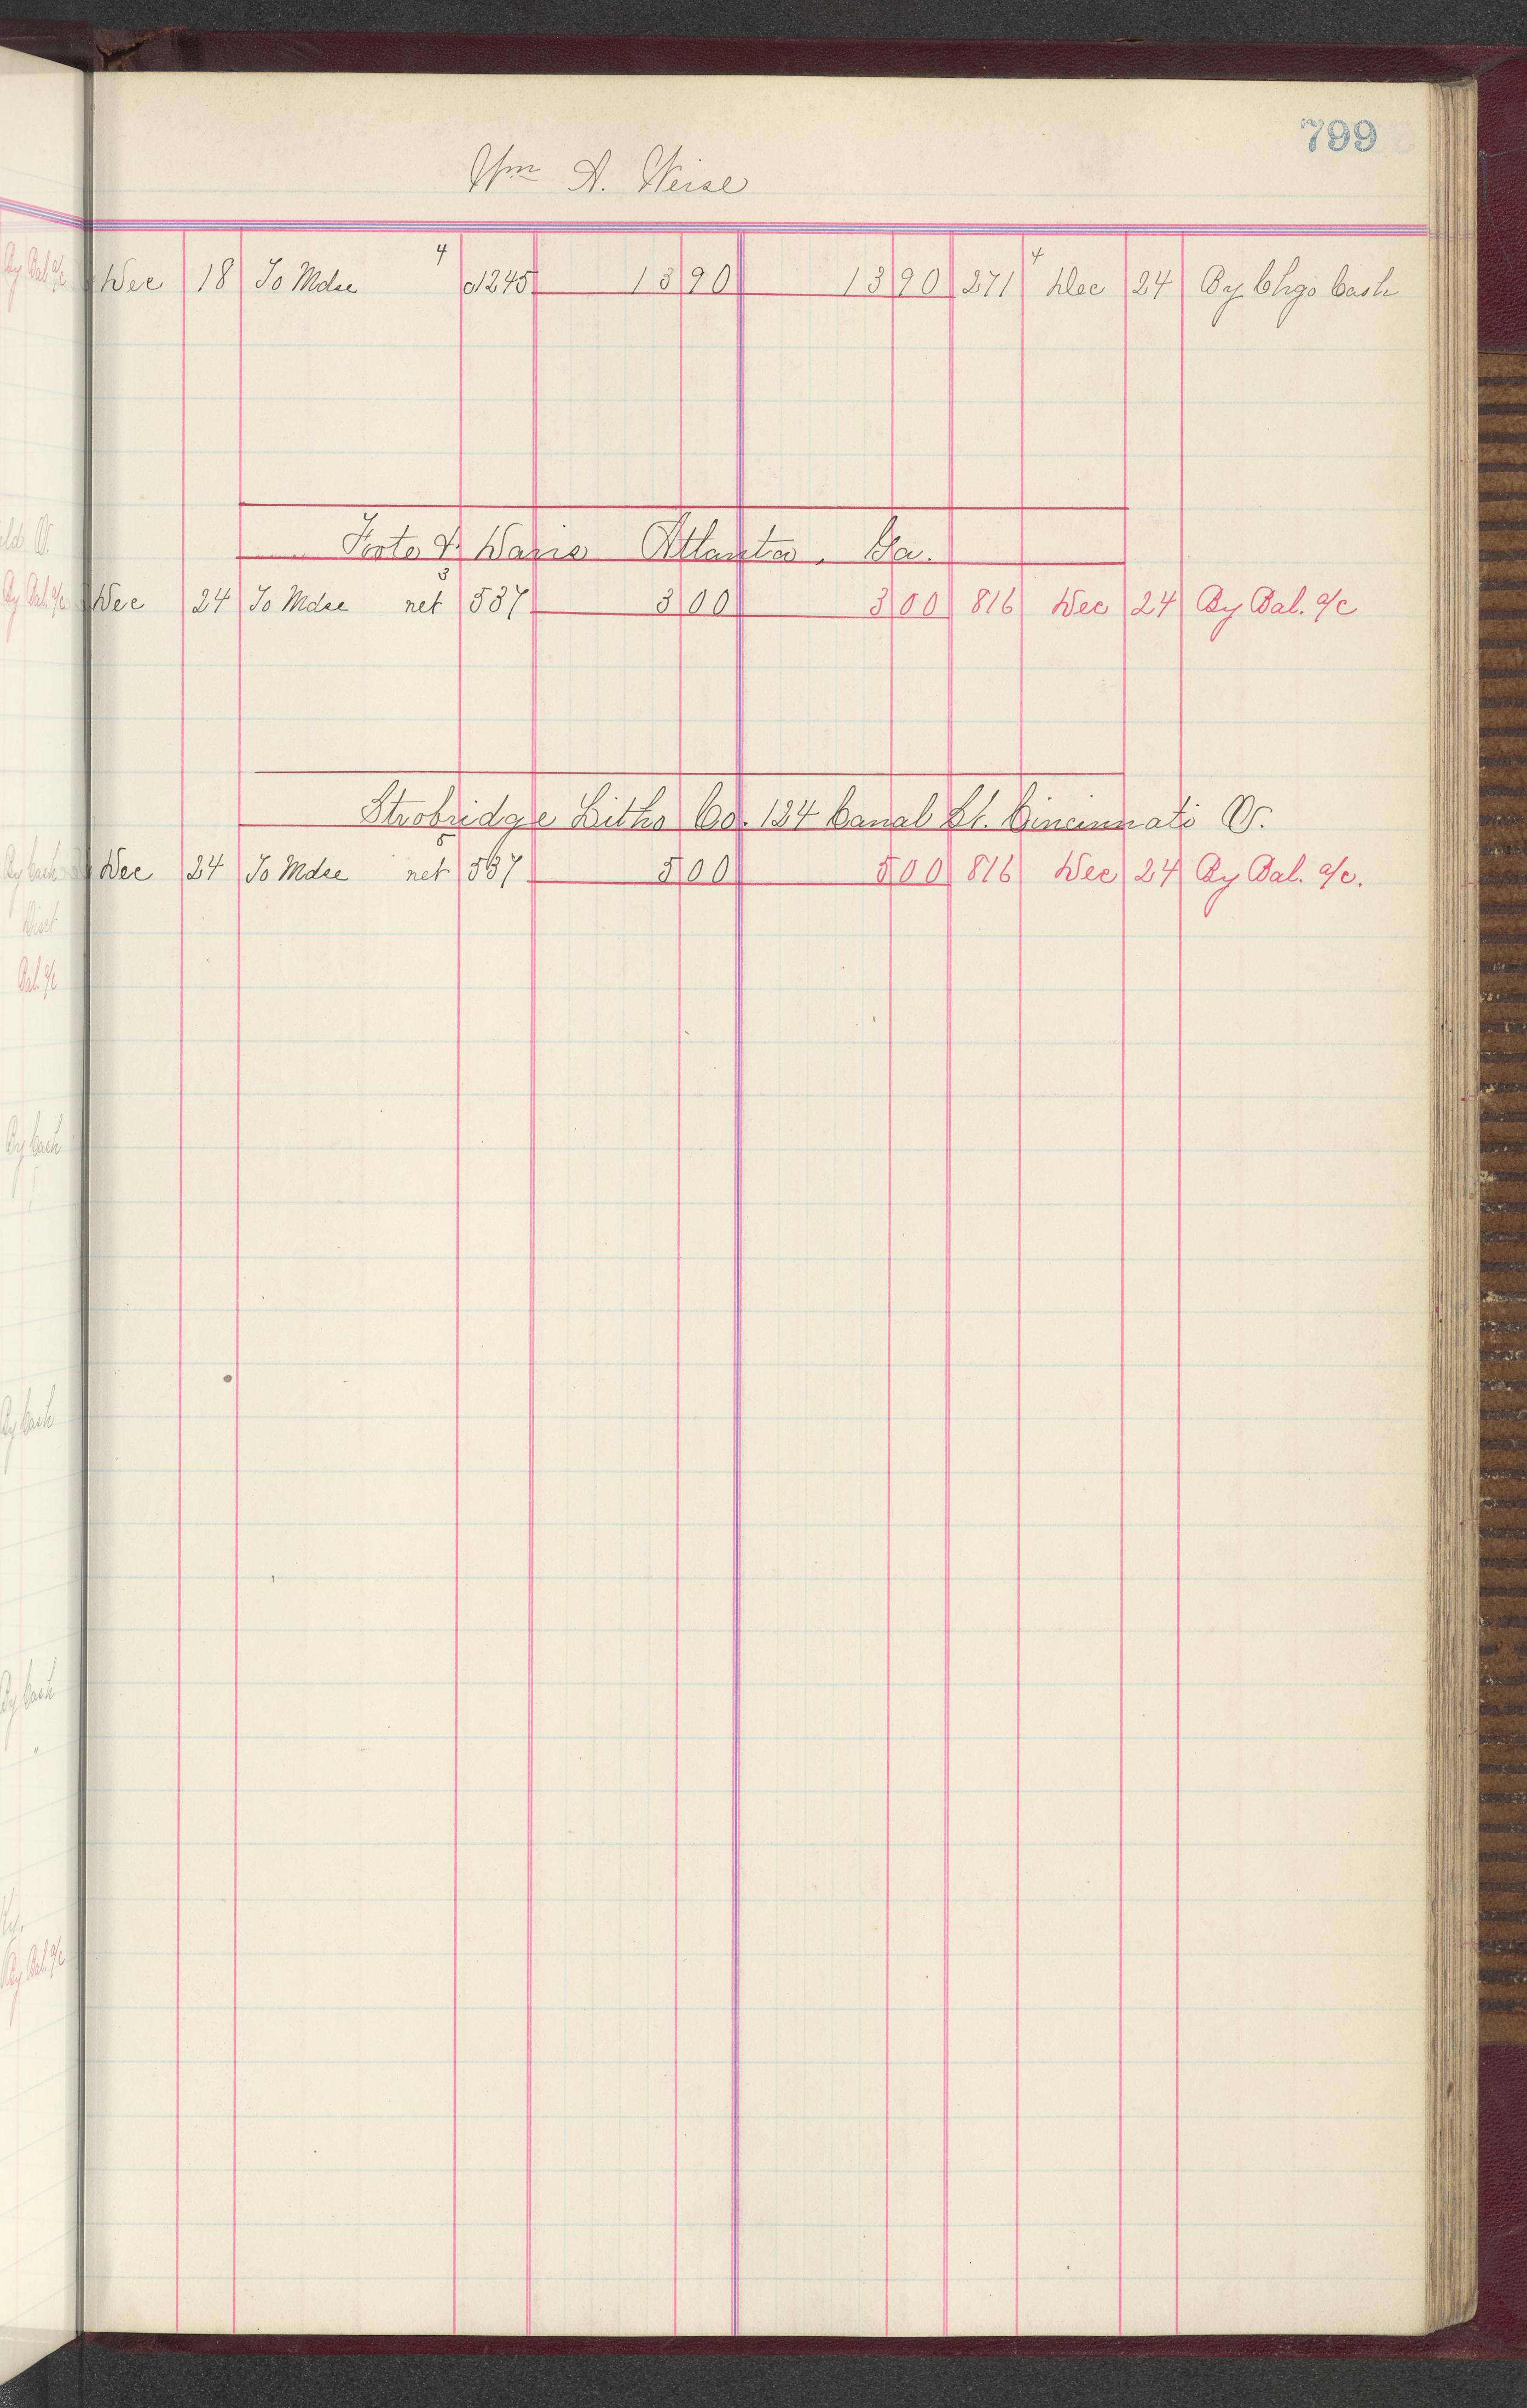 799
Wm A. Weise
Dec 18 To Mdse 4 o1245 13 90 13 90 271 4 Dec 24 By Chgo Cash
Foote & Davis Atlanta, Ga.
Dec 24 To Mdse net 3 537 3 00 3 00 816 Dec 24 By Bal. a/c
Strobridge Litho Co. 124 Canal St. Cincinnati O.
Dec 24 To Mdse net 5 537 5 00 5 00 816 Dec 24 By Bal. a/c.
By Bal a/c
By Bal. a/c
By Cash
Disct
Bal. a/c
By Cash
By Cash
By Cash
Ky.
By Bal. a/c